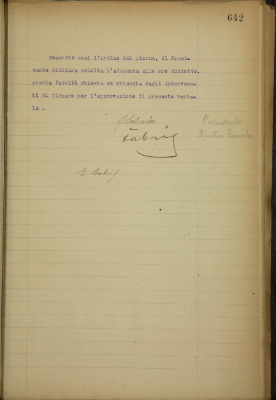 642
Esaurito così l'ordine del giorno, il Presi-
dente dichiara sciolta l'adunanza alle ore diciotto,
previa facoltà chiesta ed ottenuta dagli intervenu-
ti di firmare per l'approvazione il presente verba-
le .
Presidente
Fabriz